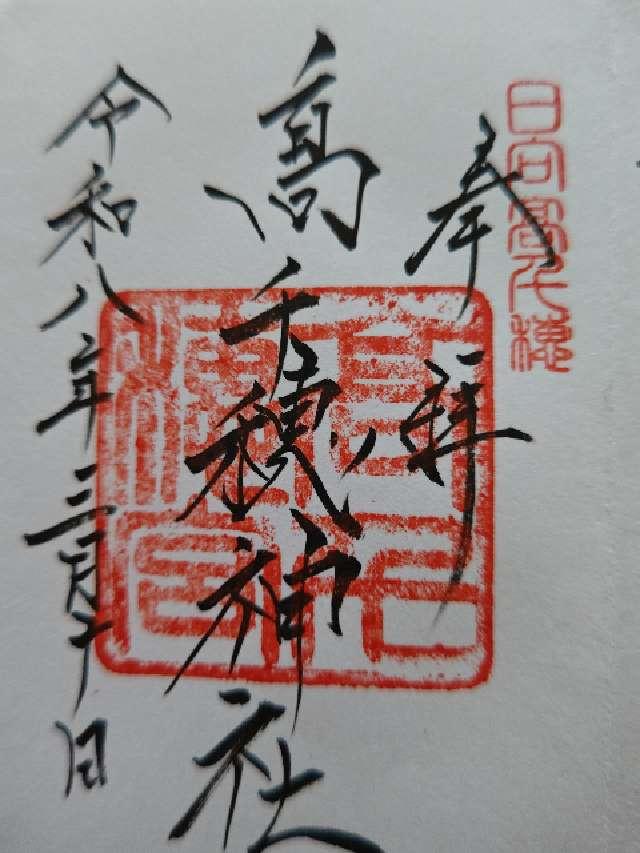 日向高千穂
奉拝
高千穂神社
令和八年三月十日